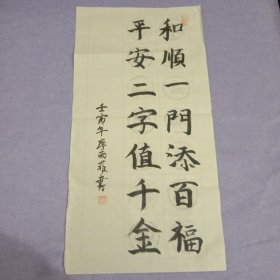 和順一門添百福
平安二字值千金
壬寅年廖雨嚴書